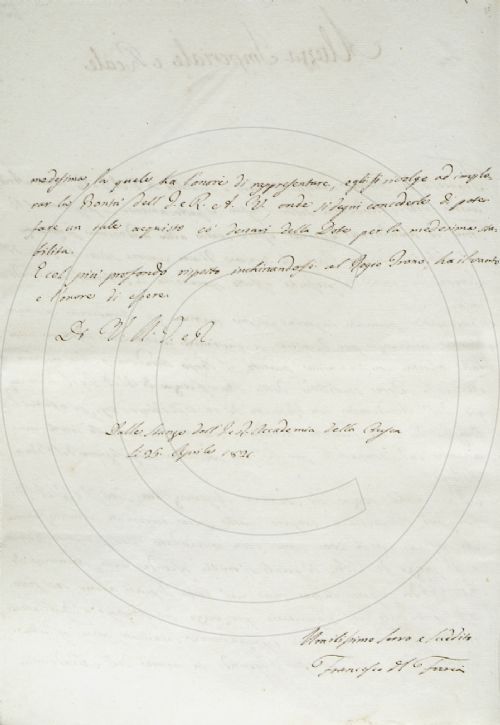 medesima, la quale ha l'onore di rappresentare, egli si rivolge ad implo-
rar la Bontà dell' I. e R. A. V. onde si degni concederle di poter
fare un tale acquisto co' denari della Dote per la medesima sta-
bilita.
E col più profondo rispetto inchinandosi al Regio Trono, ha il vanto
e l'onore di essere.
Di V. A. I. e R.
Dalle Stanze dell' I. e R. Accademia della Crusca
li 26. Aprile
Umilissimo Servo e Suddito
Francesco del Furia